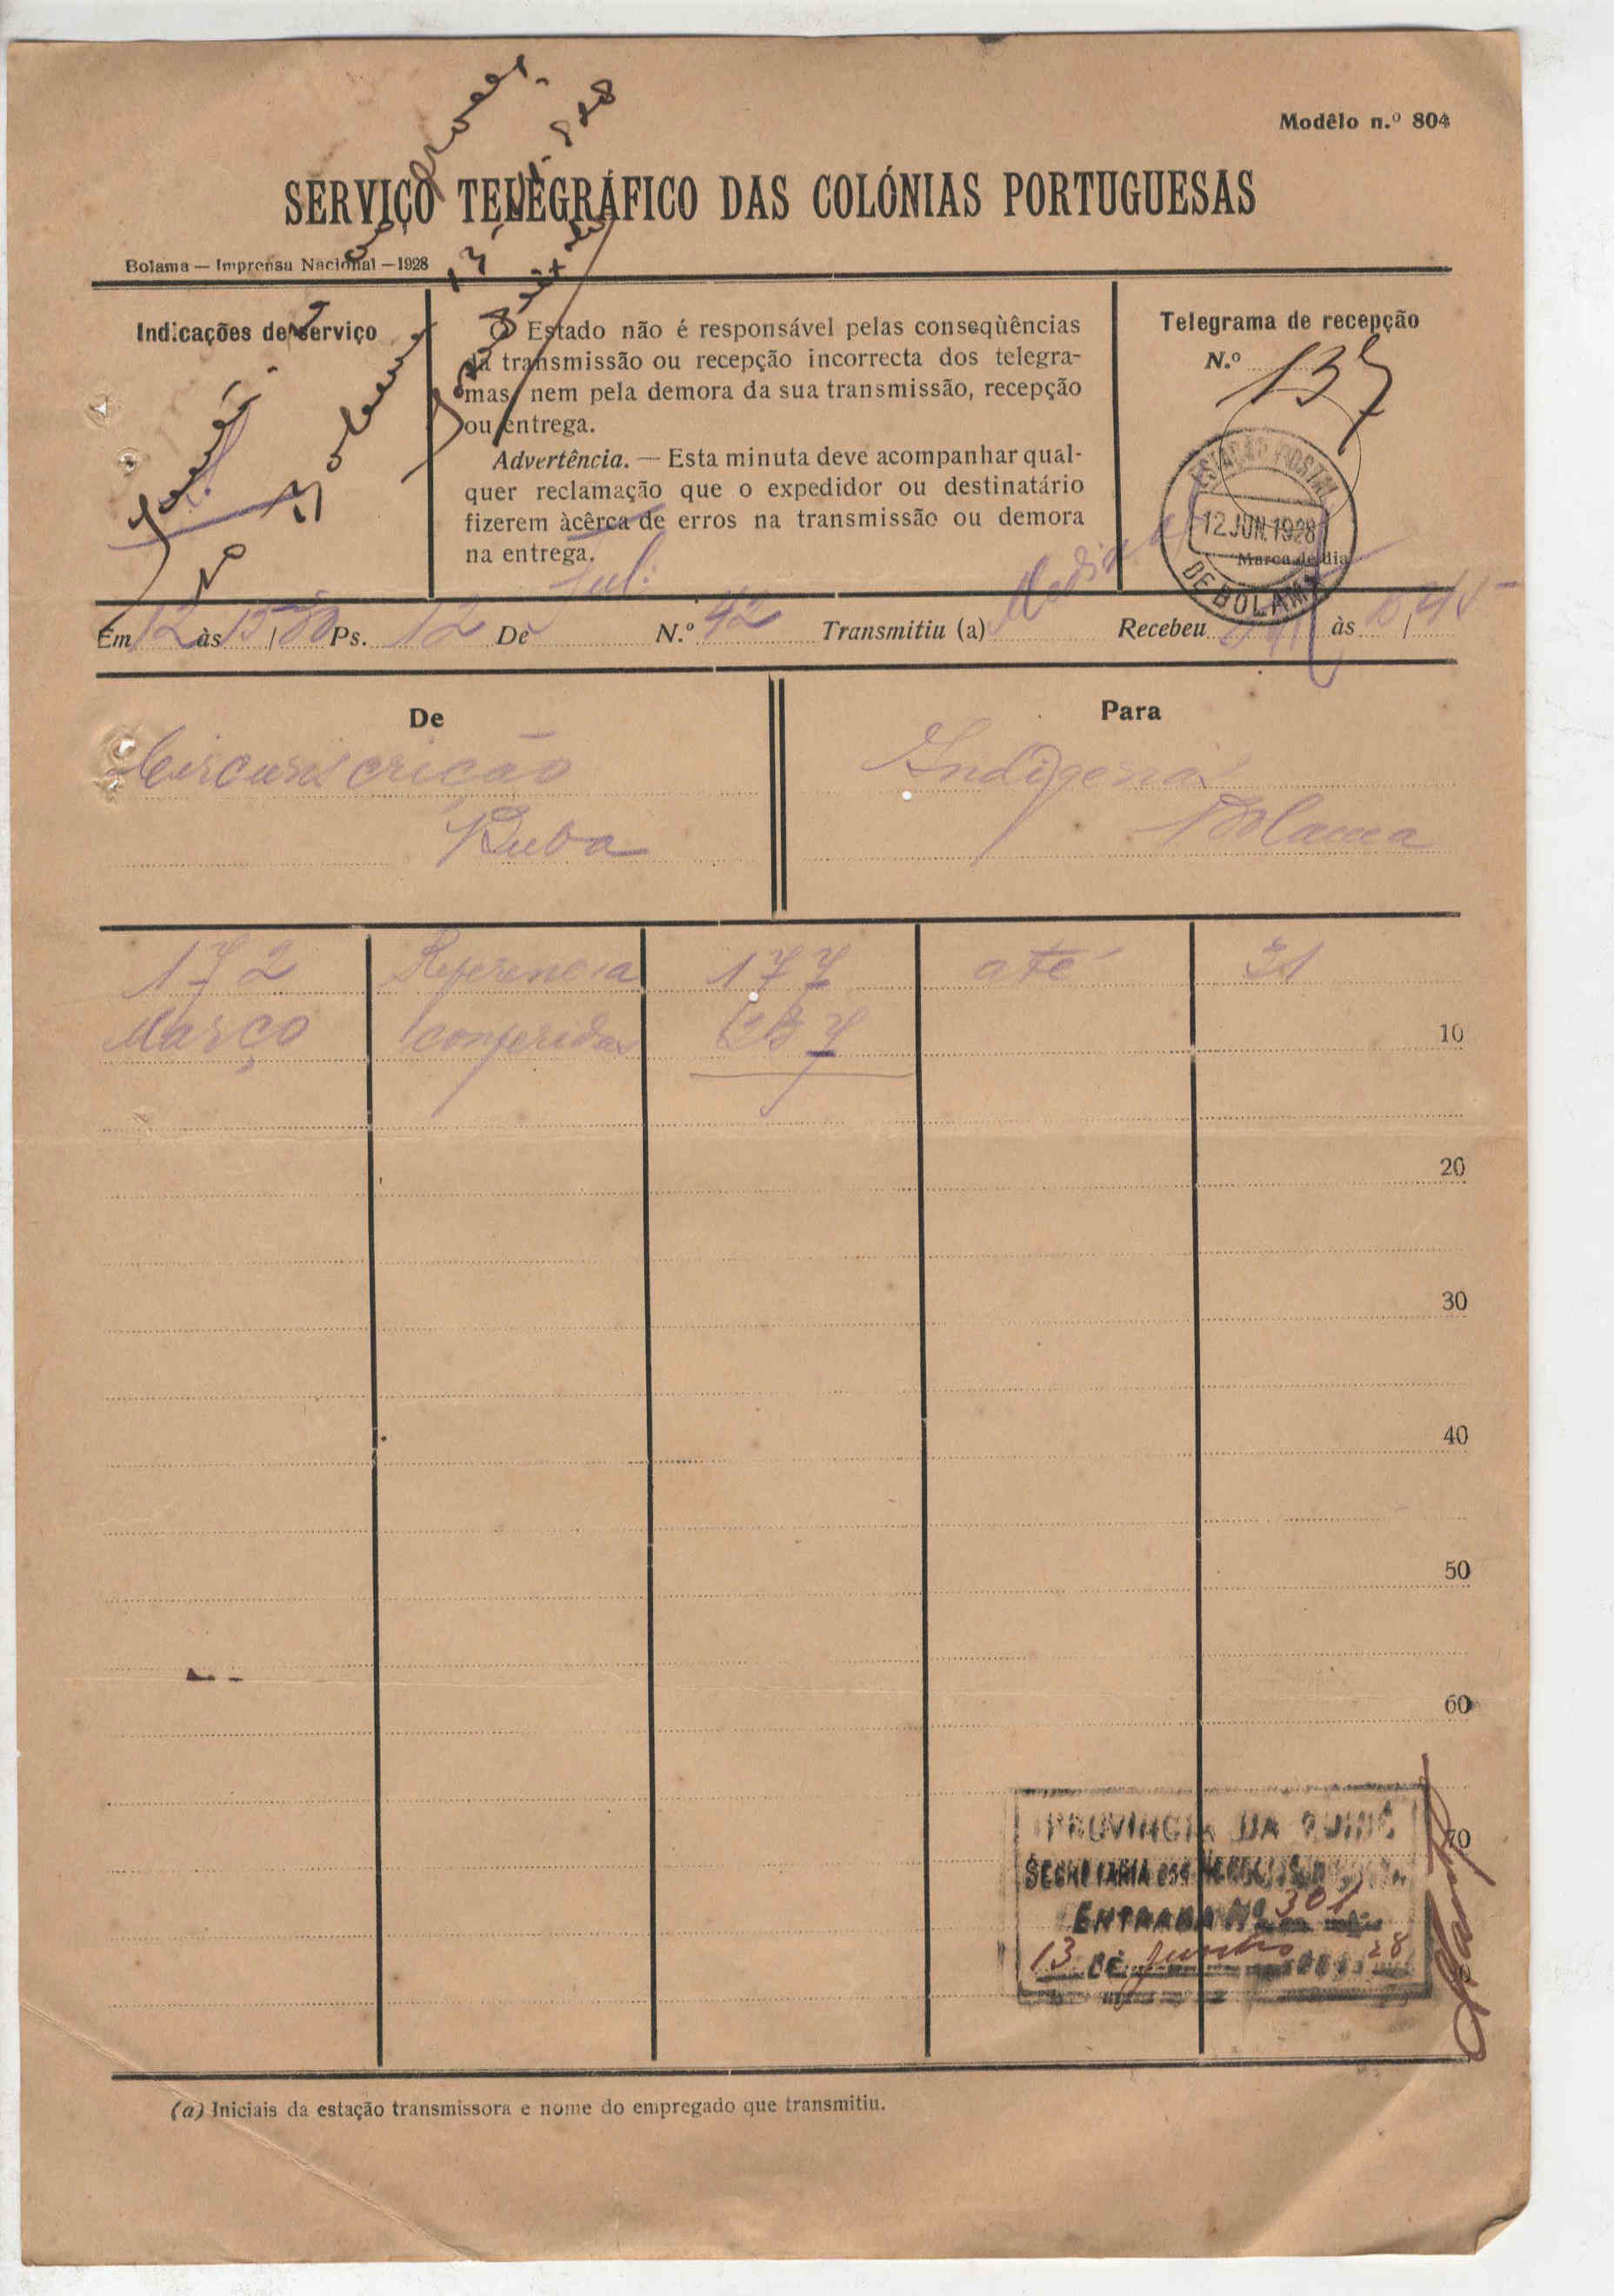 Modêlo n.º 804
SERVIÇO TELEGRÁFICO DAS COLÓNIAS PORTUGUESAS
Bolama — Imprensa Nacional — 1928
Indicações de serviço
O Estado não é responsável pelas conseqùências
da transmissão ou recepção incorrecta dos telegra-
mas, nem pela demora da sua transmissão, recepção
ou entrega.
Advertência. — Esta minuta deve acompanhar qual-
quer reclamação que o expedidor ou destinatário
fizerem àcêrca de erros na transmissão ou demora
na entrega.
Telegrama de recepção
N.º 137
ESTAÇÃO POSTAL
12 JUN. 1928
Marca de dia
DE BOLAMA
Em 12 às 15/30 Ps. 12 De N.º 42 Transmitiu (a) Recebeu às /
De
Circunscrição
Buba
Para
Indigenas
Bolama
172 Referencia 177 até 31
Março conferidas
10
20
30
40
50
60
70
PROVINCIA DA GUINÉ
ENTRADA Nº 301
13 DE Junho DE 28
(a) Iniciais da estação transmissora e nome do empregado que transmitiu.